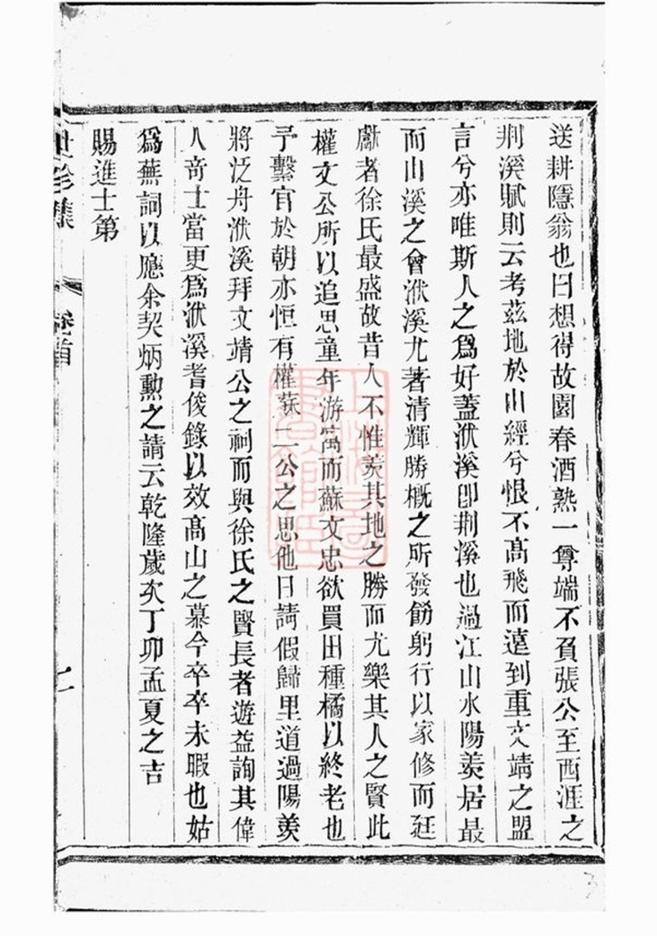 送耕隱翁也曰想得故園春酒熟一尊端不負張公至西涯之
荆溪賦則云考茲地於山經兮恨不高飛而遠到重文靖之盟
言兮亦唯斯人之爲好蓋洑溪卽荆溪也過江山水陽羨居最
而山溪之會洑溪尤著清輝勝槪之所發飭躬行以家修而廷
獻者徐氏最盛故昔人不惟羨其地之勝而尤樂其人之賢此
權文公所以追思童年游寓而蘇文忠欲買田種橘以終老也
予繫官於朝亦恒有權蘇二公之思他日請假歸里道過陽羨
將泛舟洑溪拜文靖公之祠而與徐氏之賢長者遊益詢其偉
人奇士當更爲洑溪耆俊錄以效高山之慕今卒卒未暇也姑
爲蕪詞以應余契炳勲之請云乾隆歲次丁卯孟夏之吉
賜進士第
世珍集 卷首